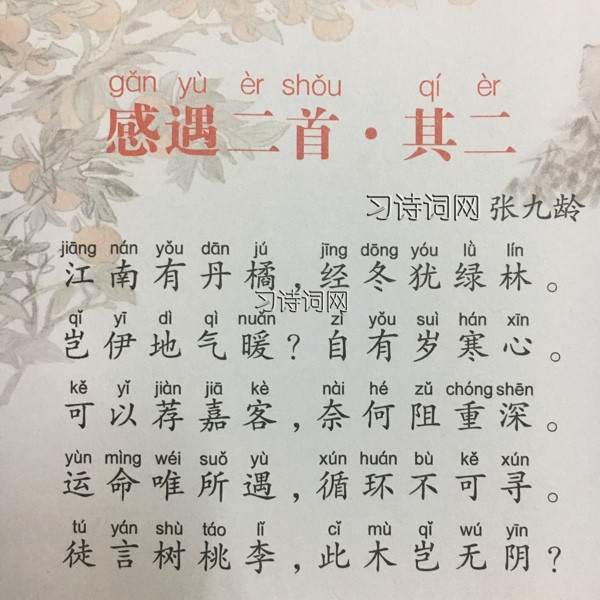 gǎn yù èr shǒu qí èr
感遇二首·其二
习诗词网 张九龄
jiāng nán yǒu dān jú jīng dōng yóu lǜ lín
江南有丹橘，经冬犹绿林。
习诗词网
qǐ yī dì qì nuǎn zì yǒu suì hán xīn
岂伊地气暖？自有岁寒心。
kě yǐ jiàn jiā kè nài hé zǔ chóng shēn
可以荐嘉客，奈何阻重深。
yùn mìng wéi suǒ yù xún huán bù kě xún
运命唯所遇，循环不可寻。
tú yán shù táo lǐ cǐ mù qǐ wú yīn
徒言树桃李，此木岂无阴？